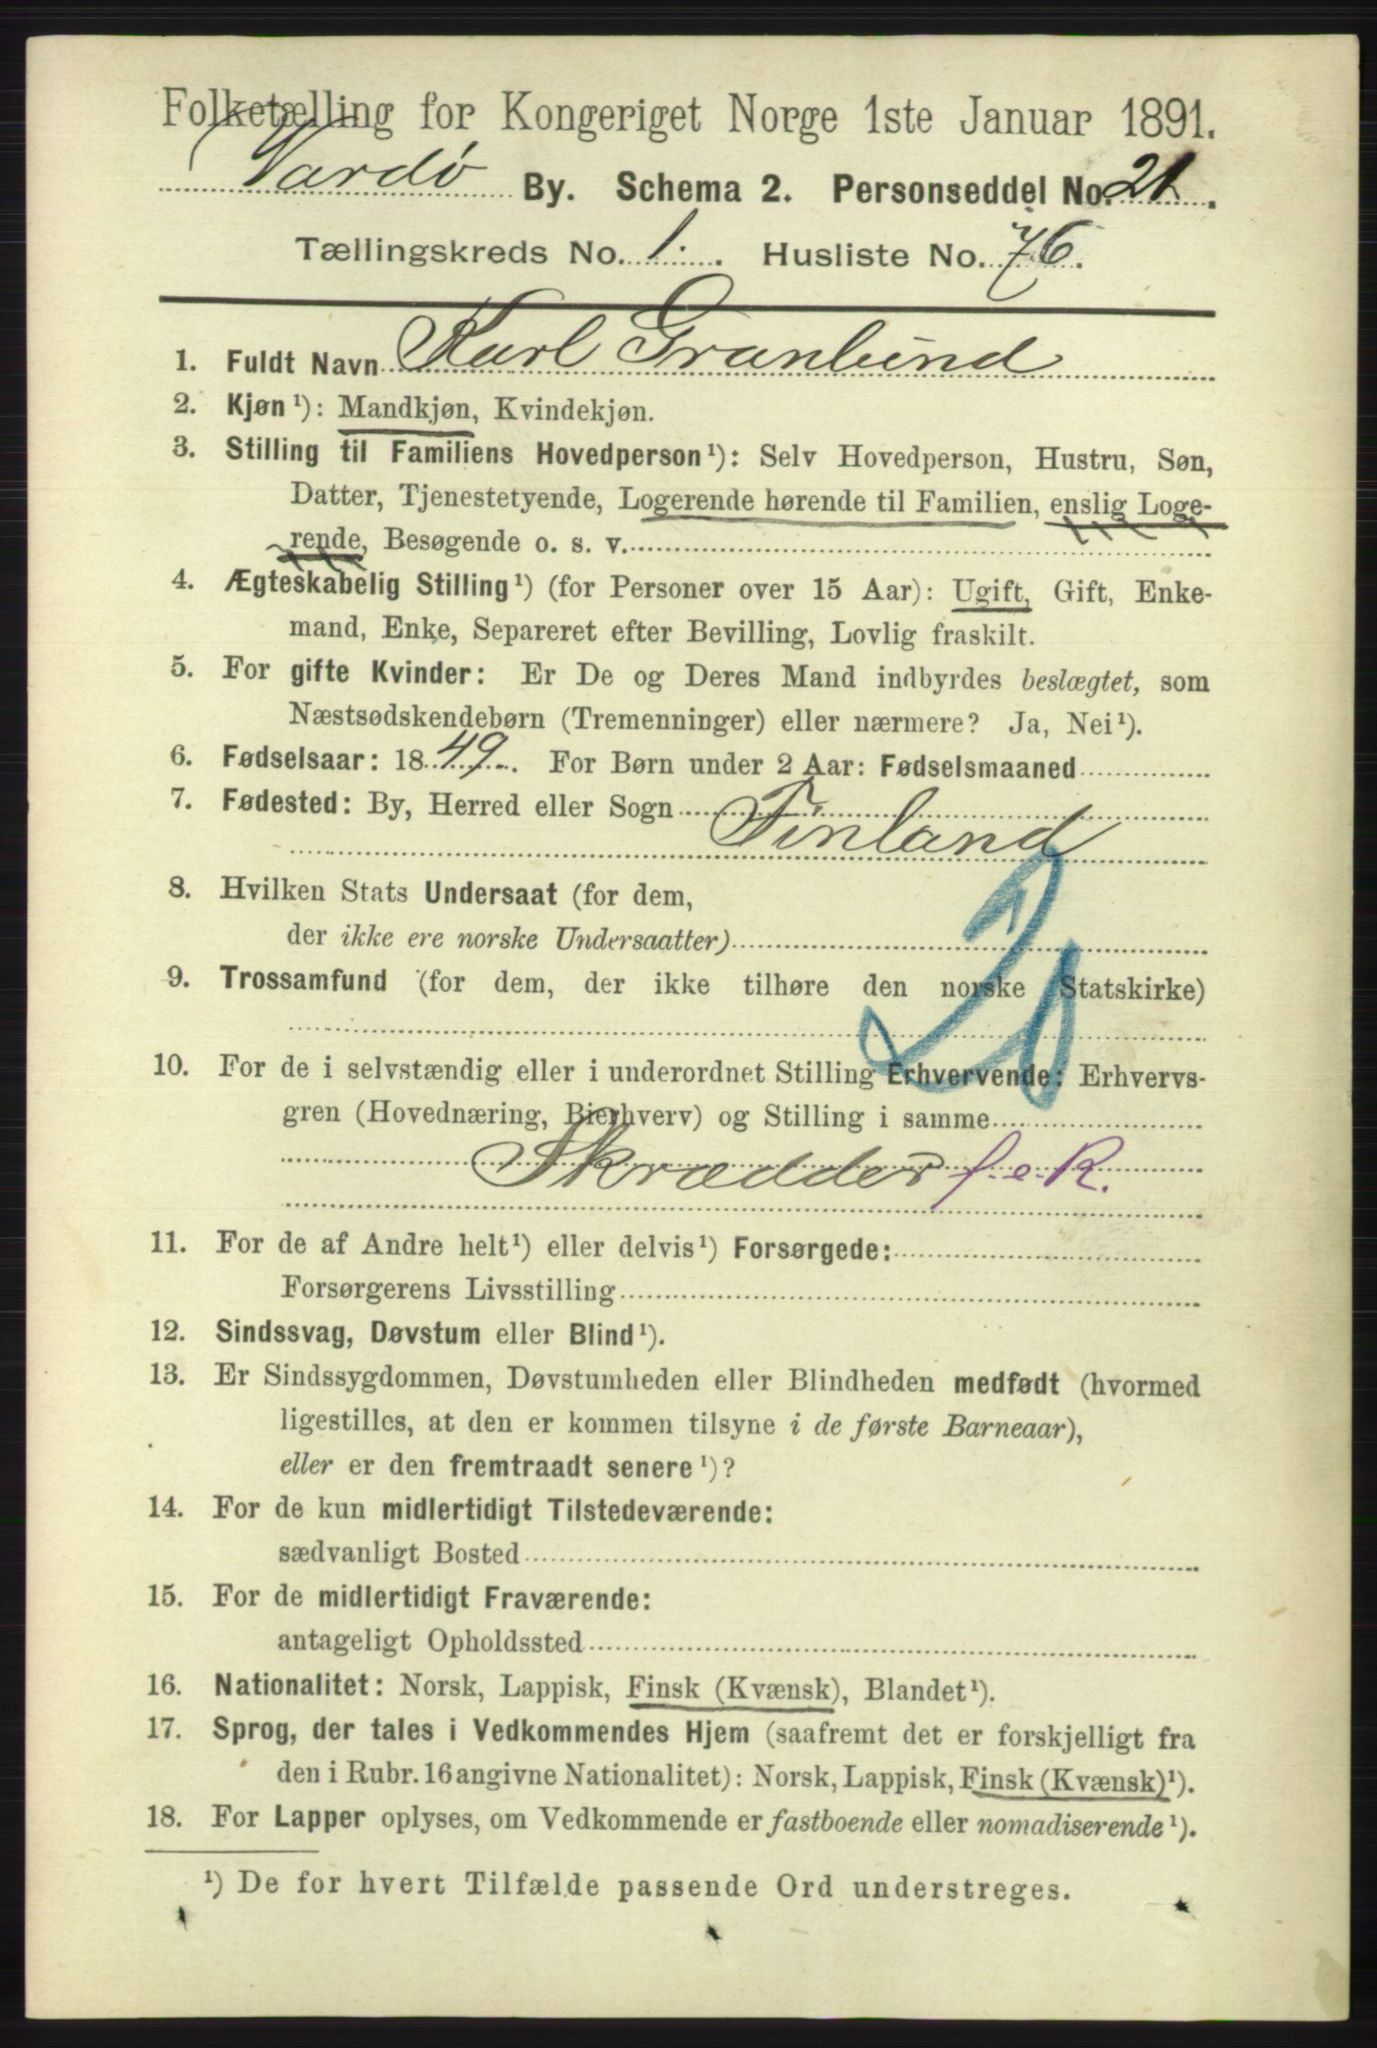 Folketælling for Kongeriget Norge 1ste Januar 1891.
Vardø By. Schema 2. Personseddel No. 21.
Tællingskreds No. 1. Husliste No. 76.
1. Fuldt Navn Karl Granlund
2. Kjøn¹): Mandkjøn, Kvindekjøn.
3. Stilling til Familiens Hovedperson¹): Selv Hovedperson, Hustru, Søn,
Datter, Tjenestetyende, Logerende hørende til Familien, enslig Loge-
rende, Besøgende o. s. v.
4. Ægteskabelig Stilling¹) (for Personer over 15 Aar): Ugift, Gift, Enke-
mand, Enke, Separeret efter Bevilling, Lovlig fraskilt.
5. For gifte Kvinder: Er De og Deres Mand indbyrdes beslægtet, som
Næstsødskendebørn (Tremenninger) eller nærmere? Ja, Nei¹).
6. Fødselsaar: 1849. For Børn under 2 Aar: Fødselsmaaned
7. Fødested: By, Herred eller Sogn
Finland
8. Hvilken Stats Undersaat (for dem,
der ikke ere norske Undersaatter)
9. Trossamfund (for dem, der ikke tilhøre den norske Statskirke)
10. For de i selvstændig eller i underordnet Stilling Erhvervende: Erhvervs-
gren (Hovednæring, Bierhverv) og Stilling i samme
Skrædder f.e.R.
11. For de af Andre helt¹) eller delvis¹) Forsørgede:
Forsørgerens Livsstilling
12. Sindssvag, Døvstum eller Blind¹).
13. Er Sindssygdommen, Døvstumheden eller Blindheden medfødt (hvormed
ligestilles, at den er kommen tilsyne i de første Barneaar),
eller er den fremtraadt senere¹)?
14. For de kun midlertidigt Tilstedeværende:
sædvanligt Bosted
15. For de midlertidigt Fraværende:
antageligt Opholdssted
16. Nationalitet: Norsk, Lappisk, Finsk (Kvænsk), Blandet¹).
17. Sprog, der tales i Vedkommendes Hjem (saafremt det er forskjelligt fra
den i Rubr. 16 angivne Nationalitet): Norsk, Lappisk, Finsk (Kvænsk)¹).
18. For Lapper oplyses, om Vedkommende er fastboende eller nomadiserende¹).
¹) De for hvert Tilfælde passende Ord understreges.